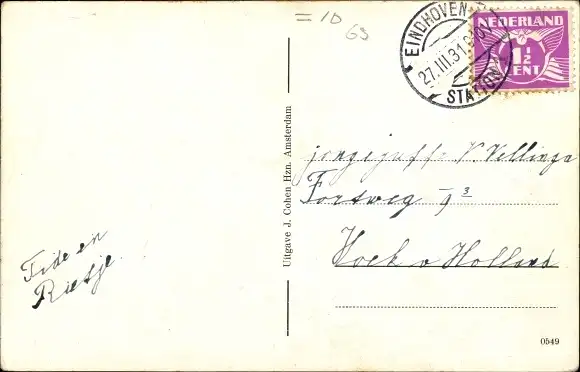 = 10
63
EINDHOVEN
27.III.31
STATION
NEDERLAND
1½
CENT
Uitgave J. Cohen Hzn. Amsterdam
V. Vellinga
Fortweg 9³
Hoek v Holland
Tide en
Rietje.
0549